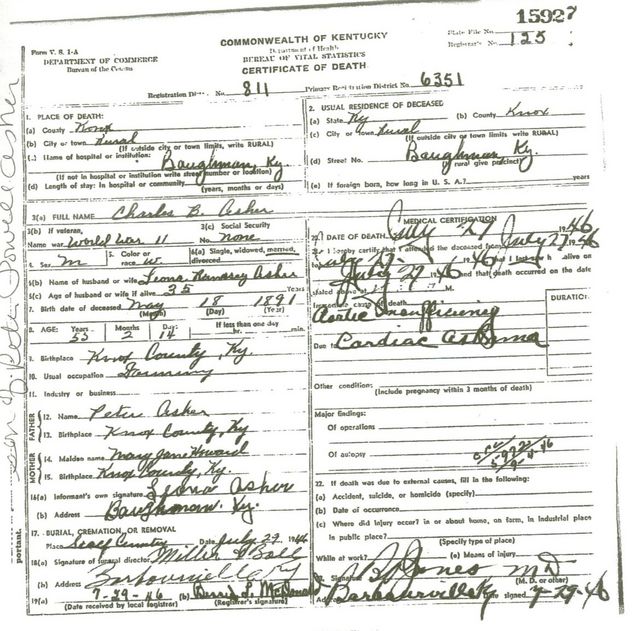 15927
COMMONWEALTH OF KENTUCKY
State File No.
Form V. S. 1-A
Department of Health
Registrar's No. 125
DEPARTMENT OF COMMERCE
BUREAU OF VITAL STATISTICS
Bureau of the Census
CERTIFICATE OF DEATH
Registration Dist. No. 811 Primary Registration District No. 6351
1. PLACE OF DEATH:
(a) County Knox
(b) City or town Rural
(If outside city or town limits, write RURAL)
(c) Name of hospital or institution: Baughman, Ky.
(If not in hospital or institution write street number or location)
(d) Length of stay: In hospital or community
(years, months or days)
2. USUAL RESIDENCE OF DECEASED
(a) State Ky (b) County Knox
(c) City or town Rural
(If outside city or town limits, write RURAL)
(d) Street No. Baughman, Ky.
rural give precinct)
(e) If foreign born, how long in U. S. A.? years
3(a) FULL NAME Charles B. Asher
3(b) If veteran, 3(c) Social Security
Name war World War 11 No. none
4. Sex M 5. Color or race W 6(a) Single, widowed, married, divorced
6(b) Name of husband or wife Leona Asher
6(c) Age of husband or wife if alive 35 Years
7. Birth date of deceased May 18 1891
(Month) (Day) (Year)
8. AGE: Years 55 Months 2 Days 14 If less than one day hr. min.
9. Birthplace Knox County, Ky.
10. Usual occupation Farming
11. Industry or business
FATHER
12. Name Peter Asher
13. Birthplace Knox County, Ky
MOTHER
14. Maiden name Mary Jane Howard
15. Birthplace Knox County, Ky.
16(a) Informant's own signature Leona Asher
(b) Address Baughman Ky.
17. BURIAL, CREMATION, OR REMOVAL
Place Cemetery Date July 29 1946
18(a) Signature of funeral director Miller & Ball
(b) Address Barbourville Ky
19(a) 7-29-46 (b)
(Date received by local registrar) (Registrar's signature)
MEDICAL CERTIFICATION
DATE OF DEATH July 27 1946
I hereby certify that I attended the deceased from July 27 1946
July 27 1946 that I last saw h alive on
July 27 1946 and that death occurred on the date
stated above at
Immediate cause of death
DURATION:
Aortic Insufficiency
Due to Cardiac Asthma
Other condition:
(Include pregnancy within 3 months of death)
Major Findings:
Of operations
Of autopsy
22. If death was due to external causes, fill in the following:
(a) Accident, suicide, or homicide (specify)
(b) Date of occurrence
(c) Where did injury occur? in or about home, on farm, in industrial place
in public place?
(Specify type of place)
While at work? (e) Means of injury
Signature Jones MD
(M. D. or other)
Address Barbourville Ky signed 7-29-46
portant.